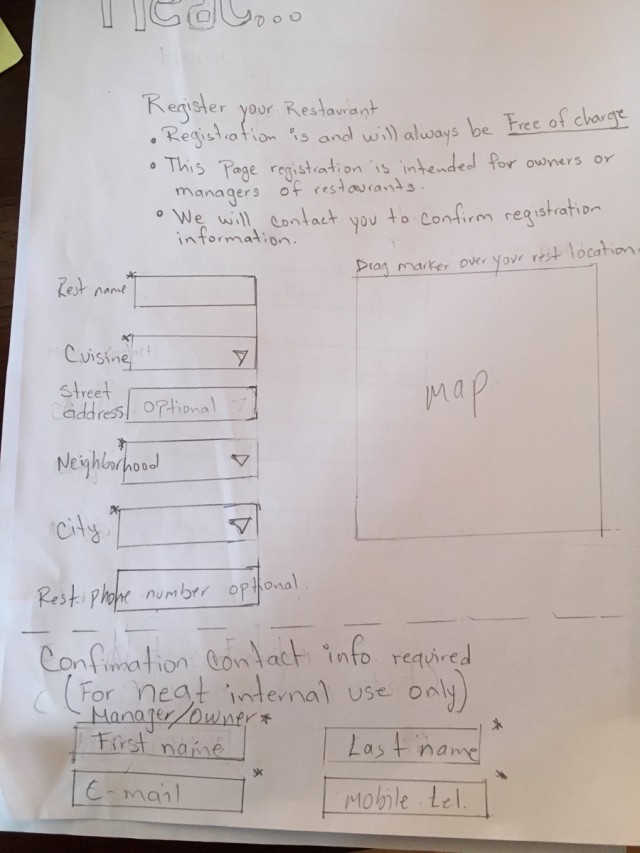 neat...
Register your Restaurant
• Registration is and will always be Free of charge
• This Page registration is intended for owners or
managers of restaurants.
• We will contact you to confirm registration
information.
Drag marker over your rest location.
Rest name *
Cuisine *
Street
address optional
map
Neighborhood *
City *
Rest. phone number optional.
Confimation Contact info required
(For neat internal use only)
Manager/Owner *
First name
Last name *
E-mail *
mobile.tel. *